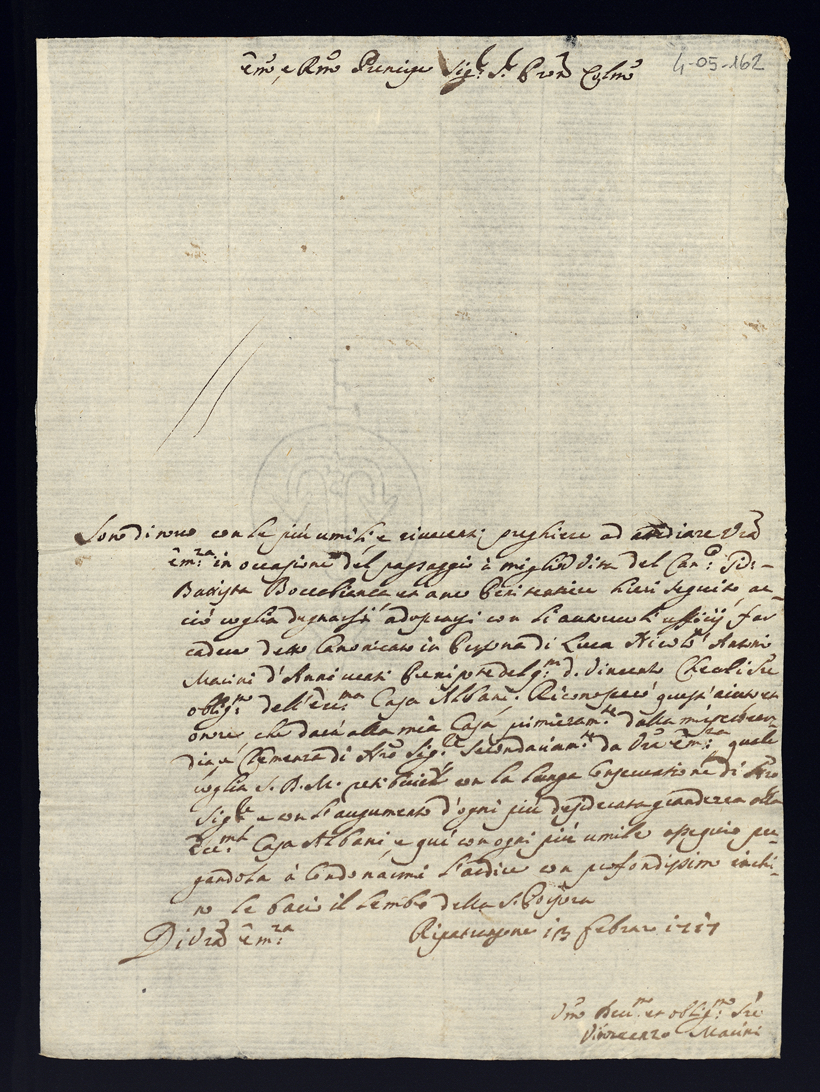 Em̃o, e Rm̃o Principe Sig.r S.r Pron̄ Colm̃o
4-05-162
Sono di novo con le più umili, e riverenti preghiere ad attediare Vrā
Em.za in occasione del passaggio à miglior Vita del Can.o Gio:
Battista Boccabianca hieri seguito, ac-
ciò voglia degnarsi adoprarsi con li autorevoli uffícij far
cadere detto Canonicato in Persona di Luca Nicolò Antonio
Marini d'Anni venti Pronipote del q.m d. Vincenzo Cheoli Sre
oblig.mo dell'Ecc.ma Casa Albani. Riconoscerò quest'aiuto et
onore che darà alla mia Casa primieram.te dalla misericor-
dia, e Clemenza di Nrō Sig.re secondariam.te da Vrā Em.za, quale
voglia S. D. M. retribuire con la lunga Conservatione di Nrō
Sig.re e con l'augumento d'ogni più desiderata grandezza alla
Ecc.ma Casa Albani, e qui con ogni più umile ossequio pre-
gandola à Condonarmi l'ardire con profondissimo inchi-
no le bacio il lembo della S. Porpora
Di Vrā Em.za Ripatransone 13 Febraro 1717
Um̃o Dev.mo et oblig.mo Sre
Vincenzo Marini